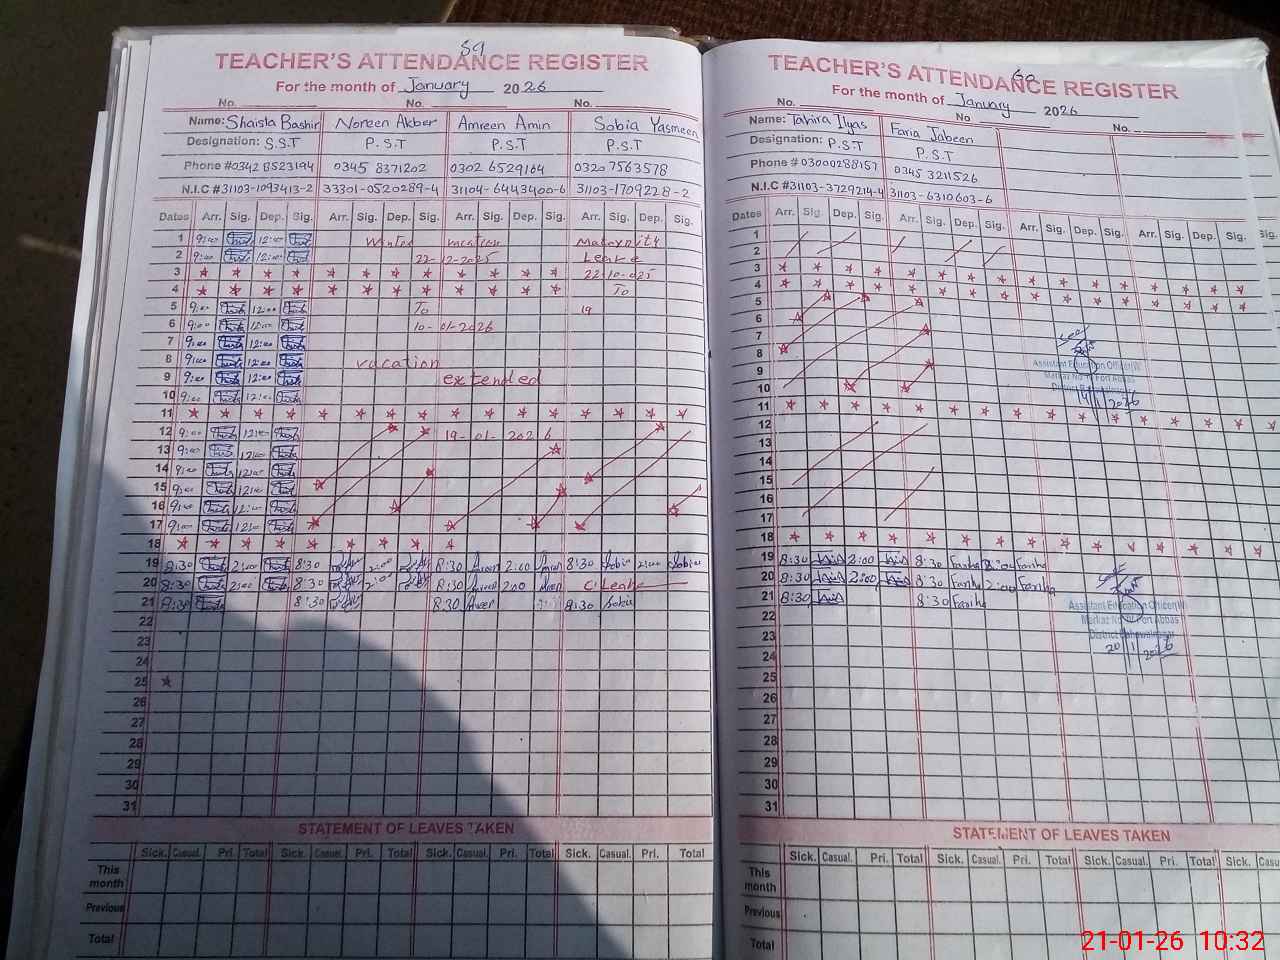 59
TEACHER'S ATTENDANCE REGISTER
For the month of January 2026
No. No. No.
Name: Shaista Bashir Noreen Akber Amreen Amin Sobia Yasmeen
Designation: S.S.T P.S.T P.S.T P.S.T
Phone # 0342 8523194 0345 8371202 0302 6529164 0320 7563578
N.I.C # 31103-1093413-2 33301-0520289-4 31104-6443400-6 31103-1709228-2
Dates Arr. Sig. Dep. Sig. Arr. Sig. Dep. Sig. Arr. Sig. Dep. Sig. Arr. Sig. Dep. Sig.
1 9:00 12:00 Winter vacation Maternity
2 9:00 12:00 22-12-2025 Leave
3 22-10-025
4 To
5 9:00 12:00 To 19
6 9:00 12:00 10-01-2026
7 9:00 12:00
8 9:00 12:00 vacation
9 9:00 12:00 extended
10 9:00 12:00
11
12 9:00 12:00 19-01-2026
13 9:00 12:00
14 9:00 12:00
15 9:00 12:00
16 9:00 12:00
17 9:00 12:00
18
19 8:30 2:00 8:30 2:00 8:30 2:00 8:30 Sobia 2:00 Sobia
20 8:30 2:00 8:30 2:00 8:30 2:00 C. Leave
21 8:30 8:30 8:30 8:30 Sobia
22
23
24
25
26
27
28
29
30
31
STATEMENT OF LEAVES TAKEN
Sick. Casual. Pri. Total Sick. Casual. Pri. Total Sick. Casual. Pri. Total Sick. Casual. Pri. Total
This month
Previous
Total
60
TEACHER'S ATTENDANCE REGISTER
For the month of January 2026
No. No. No.
Name: Tahira Ilyas Faria Jabeen
Designation: P.S.T P.S.T
Phone # 03000288157 0345 3211526
N.I.C # 31103-3729214-4 31103-6310603-6
Dates Arr. Sig. Dep. Sig. Arr. Sig. Dep. Sig. Arr. Sig. Dep. Sig. Arr. Sig. Dep. Sig.
1
2
3
4
5
6
7
8
9
10
11
12
13
14
15
16
17
18
19 8:30 2:00 8:30 Fariha 2:00 Fariha
20 8:30 2:00 8:30 Fariha 2:00 Fariha
21 8:30 8:30 Fariha
22
23
24
25
26
27
28
29
30
31
Assistant Education Officer(W)
Markaz No. Fort Abbas
District
14/1/2026
Assistant Education Officer(W)
Markaz No. Fort Abbas
District Bahawalnagar
20/1/2026
STATEMENT OF LEAVES TAKEN
Sick. Casual. Pri. Total Sick. Casual. Pri. Total Sick. Casual. Pri. Total Sick. Casual.
This month
Previous
Total
21-01-26 10:32